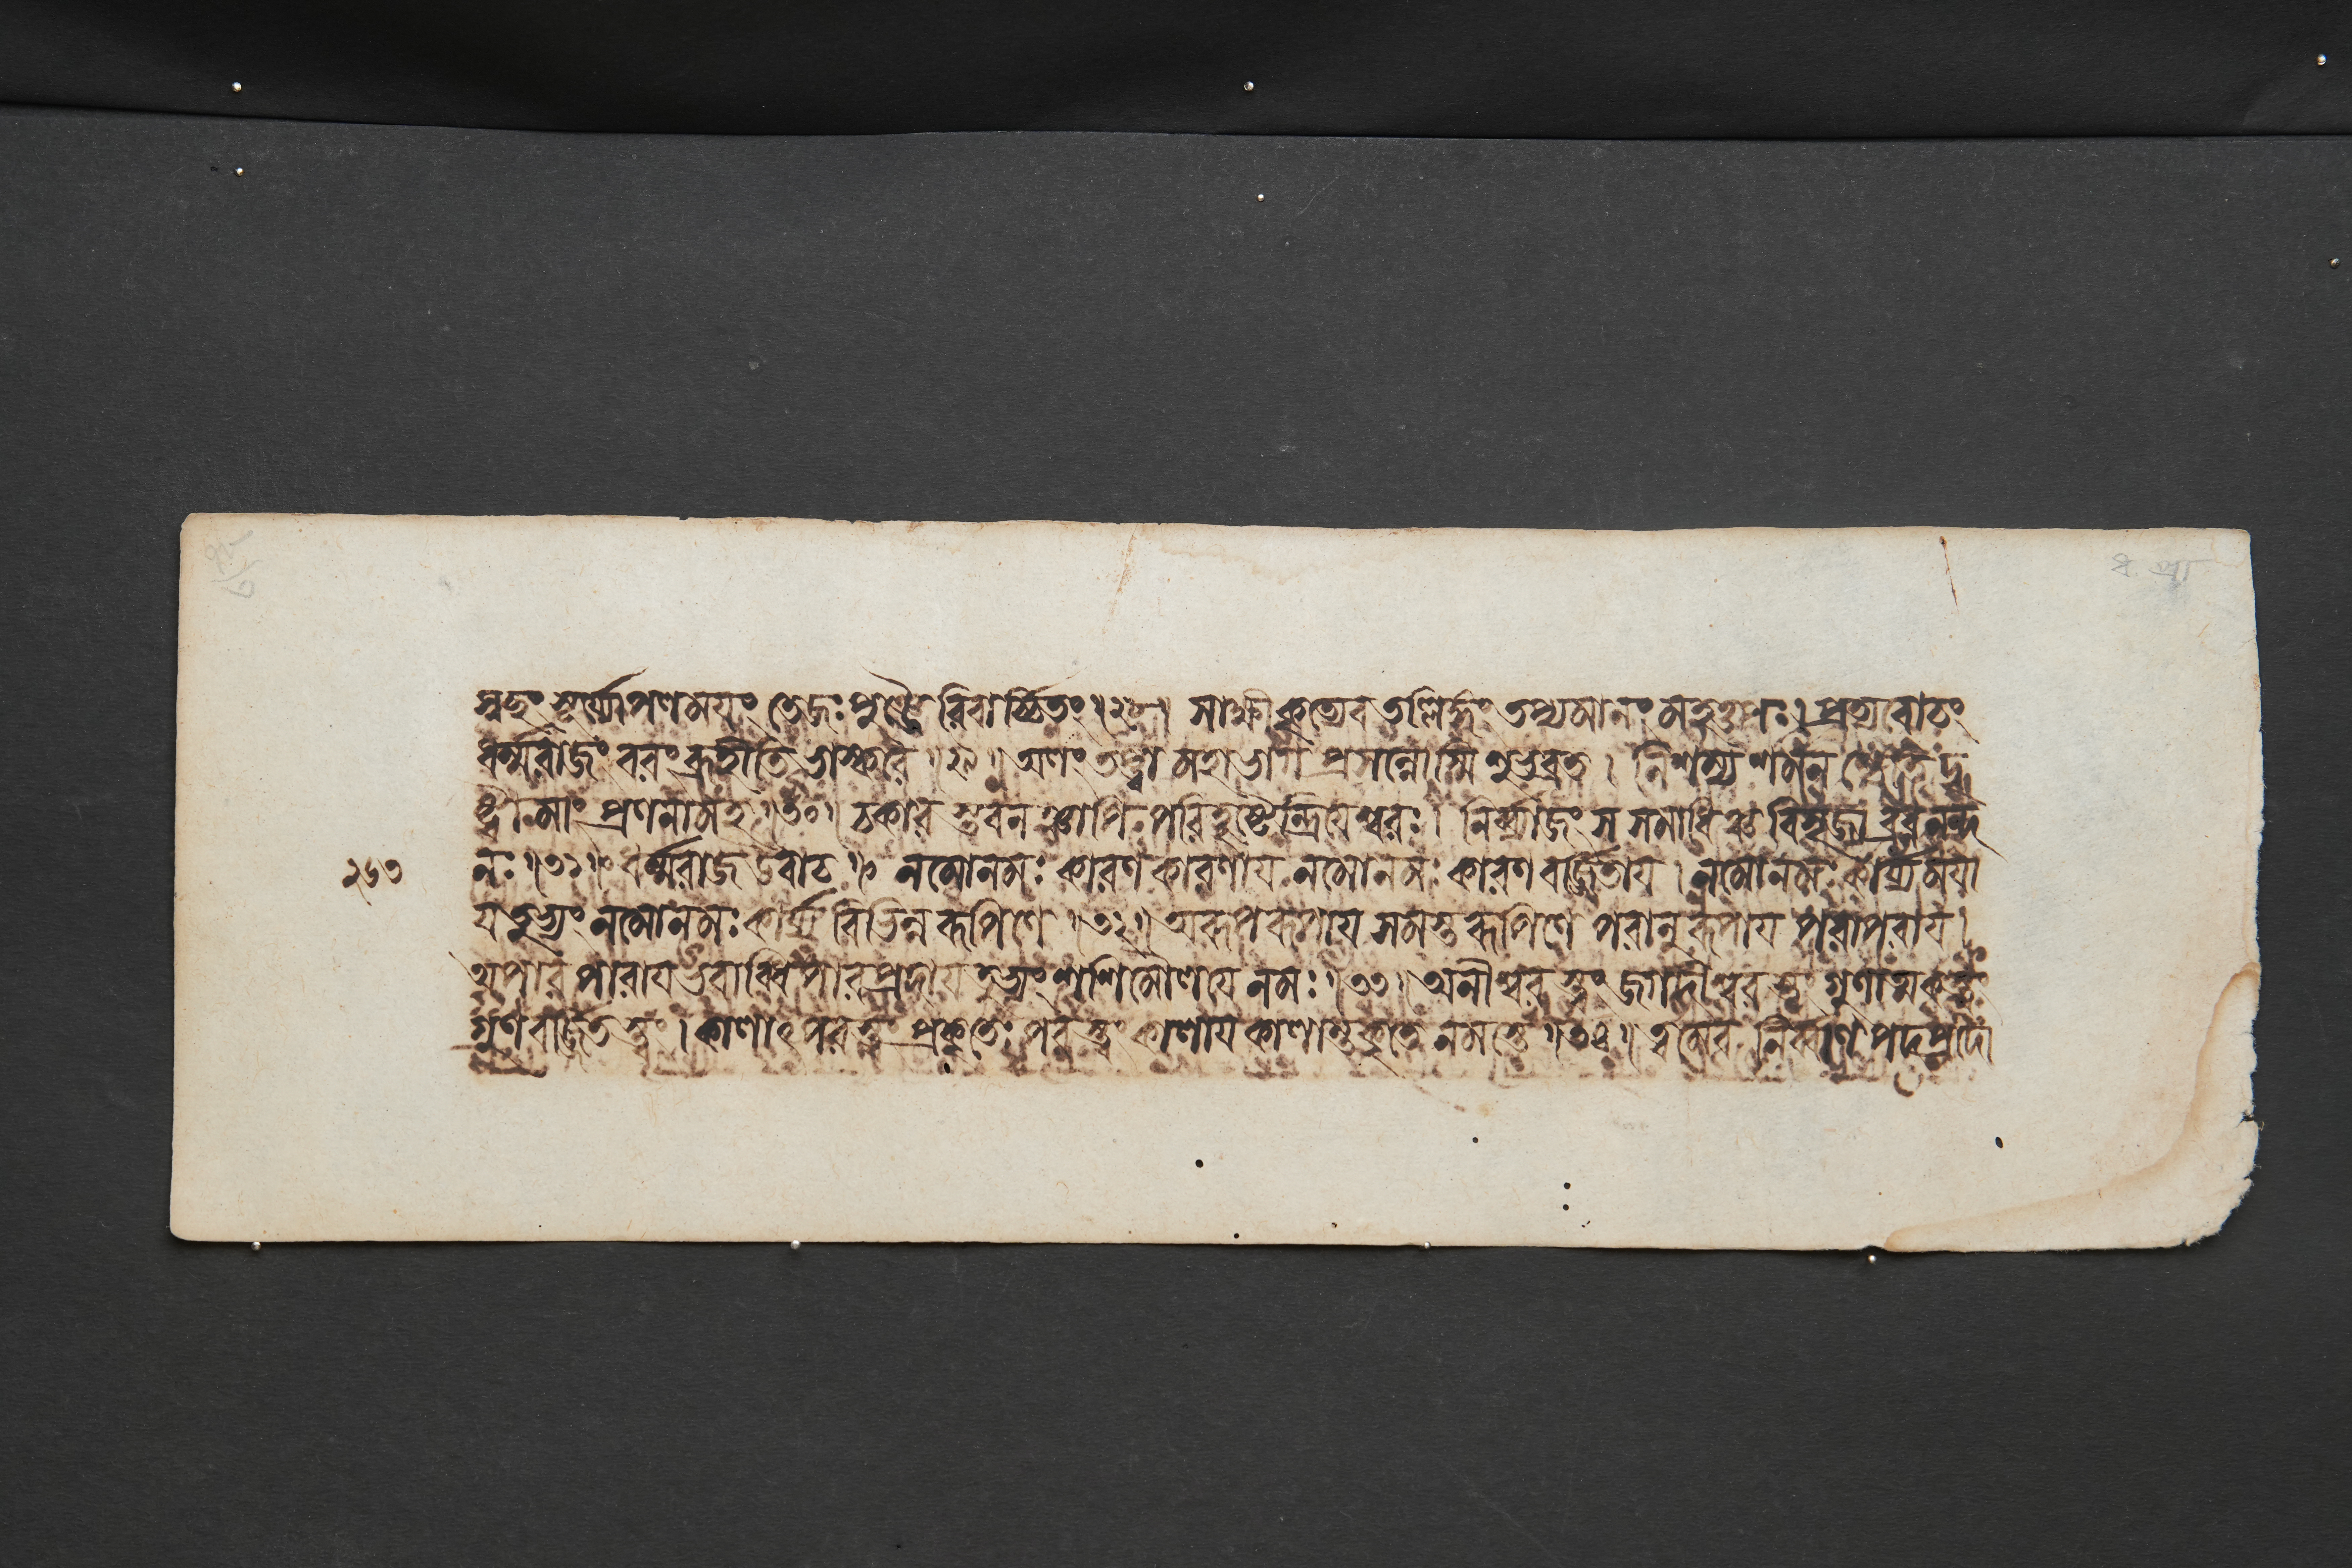 স্বচ্ছং সূর্য্যোপলময়ং তেজঃপুঞ্জৈরিবার্চ্চিতং ॥২৮॥ সাক্ষীকৃত্যেব তল্লিঙ্গং তপ্যমানং মহত্তপঃ । প্রত্যুবাচং
ধর্ম্মরাজং বরং ব্রূহীতি ভাস্করে ॥২৯॥ অলং তপ্ত্বা মহাভাগ প্রসন্নোস্মি শুভব্রত । নিশম্য শমনশ্চেতি দৃ
ষ্ট্বা মাং প্রণনামহ ॥৩০॥ চকার স্তবনঞ্চাপি পরিহৃষ্টেন্দ্রিয়েশ্বরঃ । নির্ব্যাজং স সমাধিঞ্চ বিসৃজ্য ব্রধ্ননন্দ
২৬৩ নঃ ॥৩১॥ ধর্ম্মরাজ উবাচ ॥ নমোনমঃ কারণকারণায় নমোনমঃ কারণবর্জ্জিতায় । নমোনমঃ কার্য্যময়া
য় তুভ্যং নমোনমঃ কার্য্যবিভিন্নরূপিণে ॥৩২॥ অরূপরূপায় সমস্তরূপিণে পরাণুরূপায় পরাপরায় ।
অপারপারায় ভবাব্ধিপারপ্রদায় তুভ্যং শশিমৌলয়ে নমঃ ॥৩৩॥ অনীশ্বরস্ত্বং জগদীশ্বরস্ত্বং গুণাত্মকস্ত্বং
গুণবর্জ্জিতস্ত্বং । কালাৎ পরস্ত্বং প্রকৃতেঃ পরস্ত্বং কালায় কালান্তকৃতে নমস্তে ॥৩৪॥ ত্বমেব নির্ব্বাণপদপ্রদো